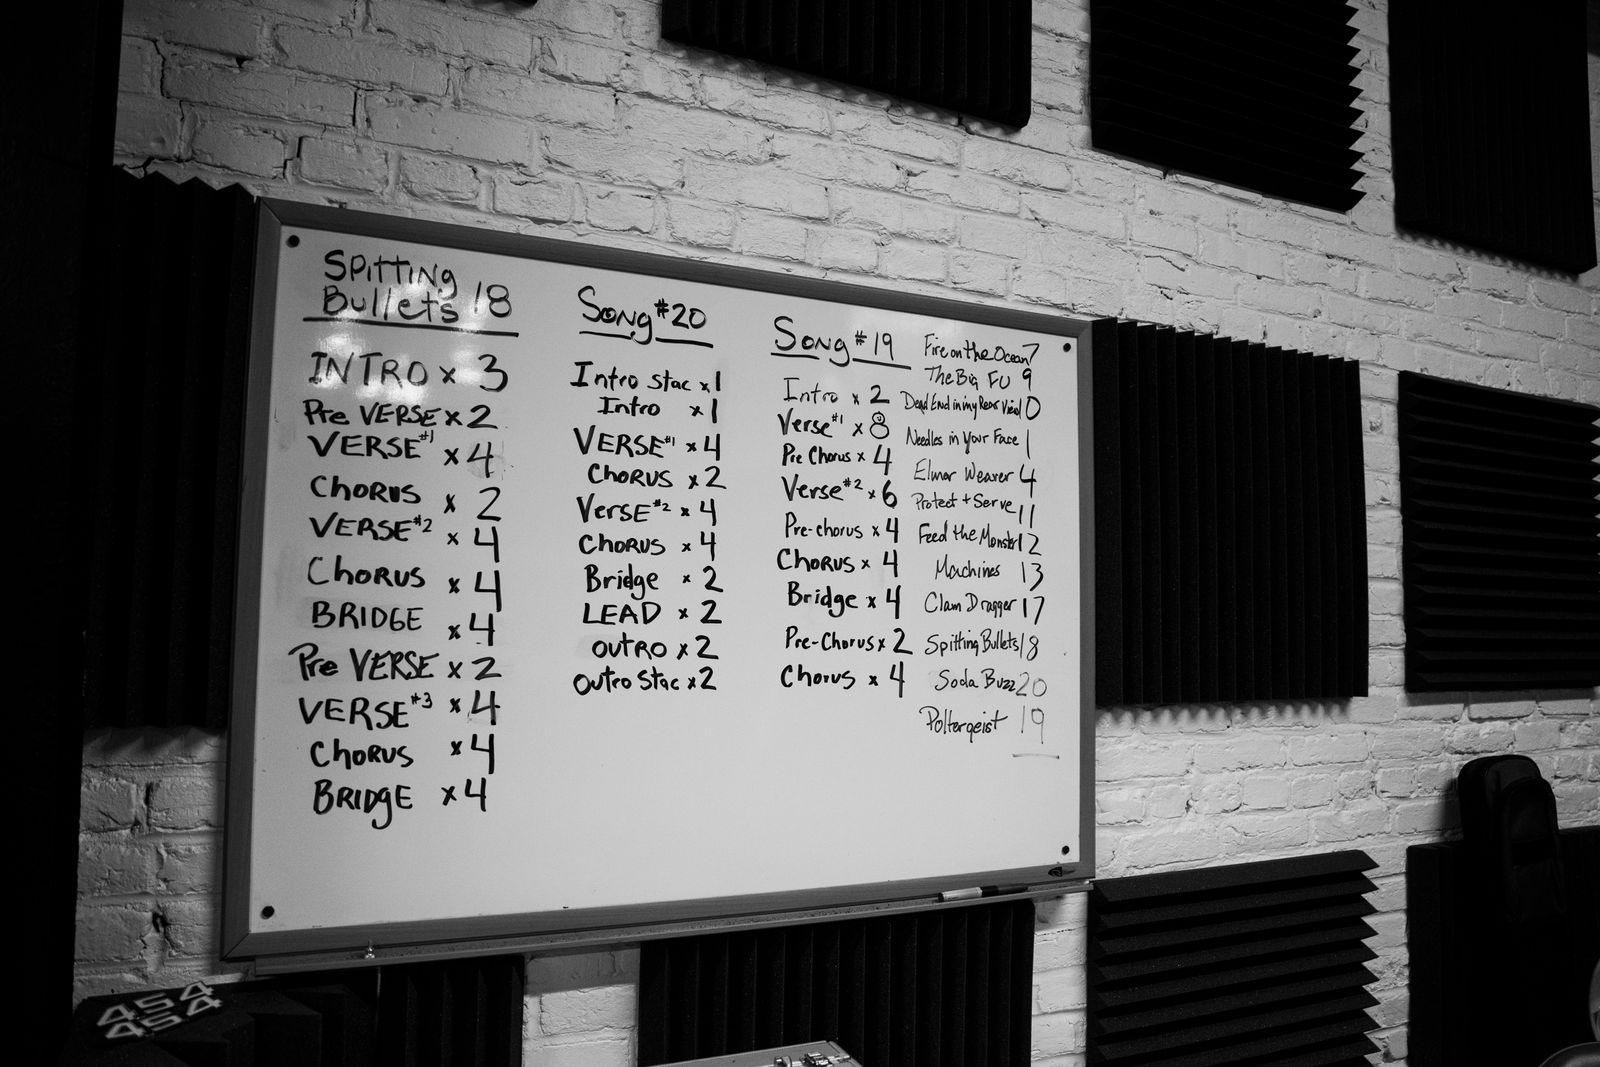 SPITTING
Bullets 18
INTRO x 3
Pre VERSE x 2
VERSE #1 x 4
CHORUS x 2
VERSE #2 x 4
CHORUS x 4
BRIDGE x 4
Pre VERSE x 2
VERSE #3 x 4
CHORUS x 4
BRIDGE x 4
Song #20
Intro stac x 1
Intro x 1
VERSE #1 x 4
CHORUS x 2
VERSE #2 x 4
CHORUS x 4
Bridge x 2
LEAD x 2
OUTRO x 2
OUTRO Stac x 2
Song #19
Intro x 2
Verse #1 x 8
Pre Chorus x 4
Verse #2 x 6
Pre-chorus x 4
Chorus x 4
Bridge x 4
Pre-Chorus x 2
Chorus x 4
Fire on the Ocean 7
The Big FU 9
Dead End in my Rear View 10
Needles in Your Face 1
Elmer Weaver 4
Protect + Serve 11
Feed the Monster 12
Machines 13
Clam Dragger 17
Spitting Bullets 18
Soda Buzz 20
Poltergeist 19
454
454